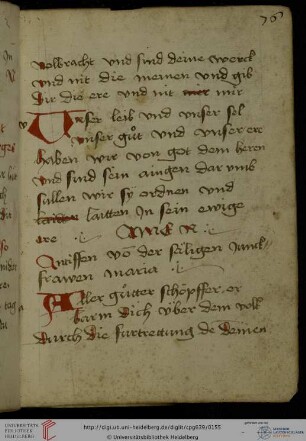 76
volbracht vnd sind deine werck
vnd nit die meinen vnd gib
dir die ere vnd nit mir mir
Vnser leib vnd vnser sel
vnser gůt vnd vnser ere
haben wir von got dem heren
vnd sind sein aingen dar vmb
sullen wir sy ordnen vnd
laitten in sein ewige
ere Amen
von der seiligen Junck
frawen maria
Aller gütter schöpffer er
barm dich v̈ber dem volk
durch die furtrettung de deinen
http://digi.ub.uni-heidelberg.de/diglit/cpg639/0155
© Universitätsbibliothek Heidelberg
UNIVERSITÄTS-
BIBLIOTHEK
HEIDELBERG